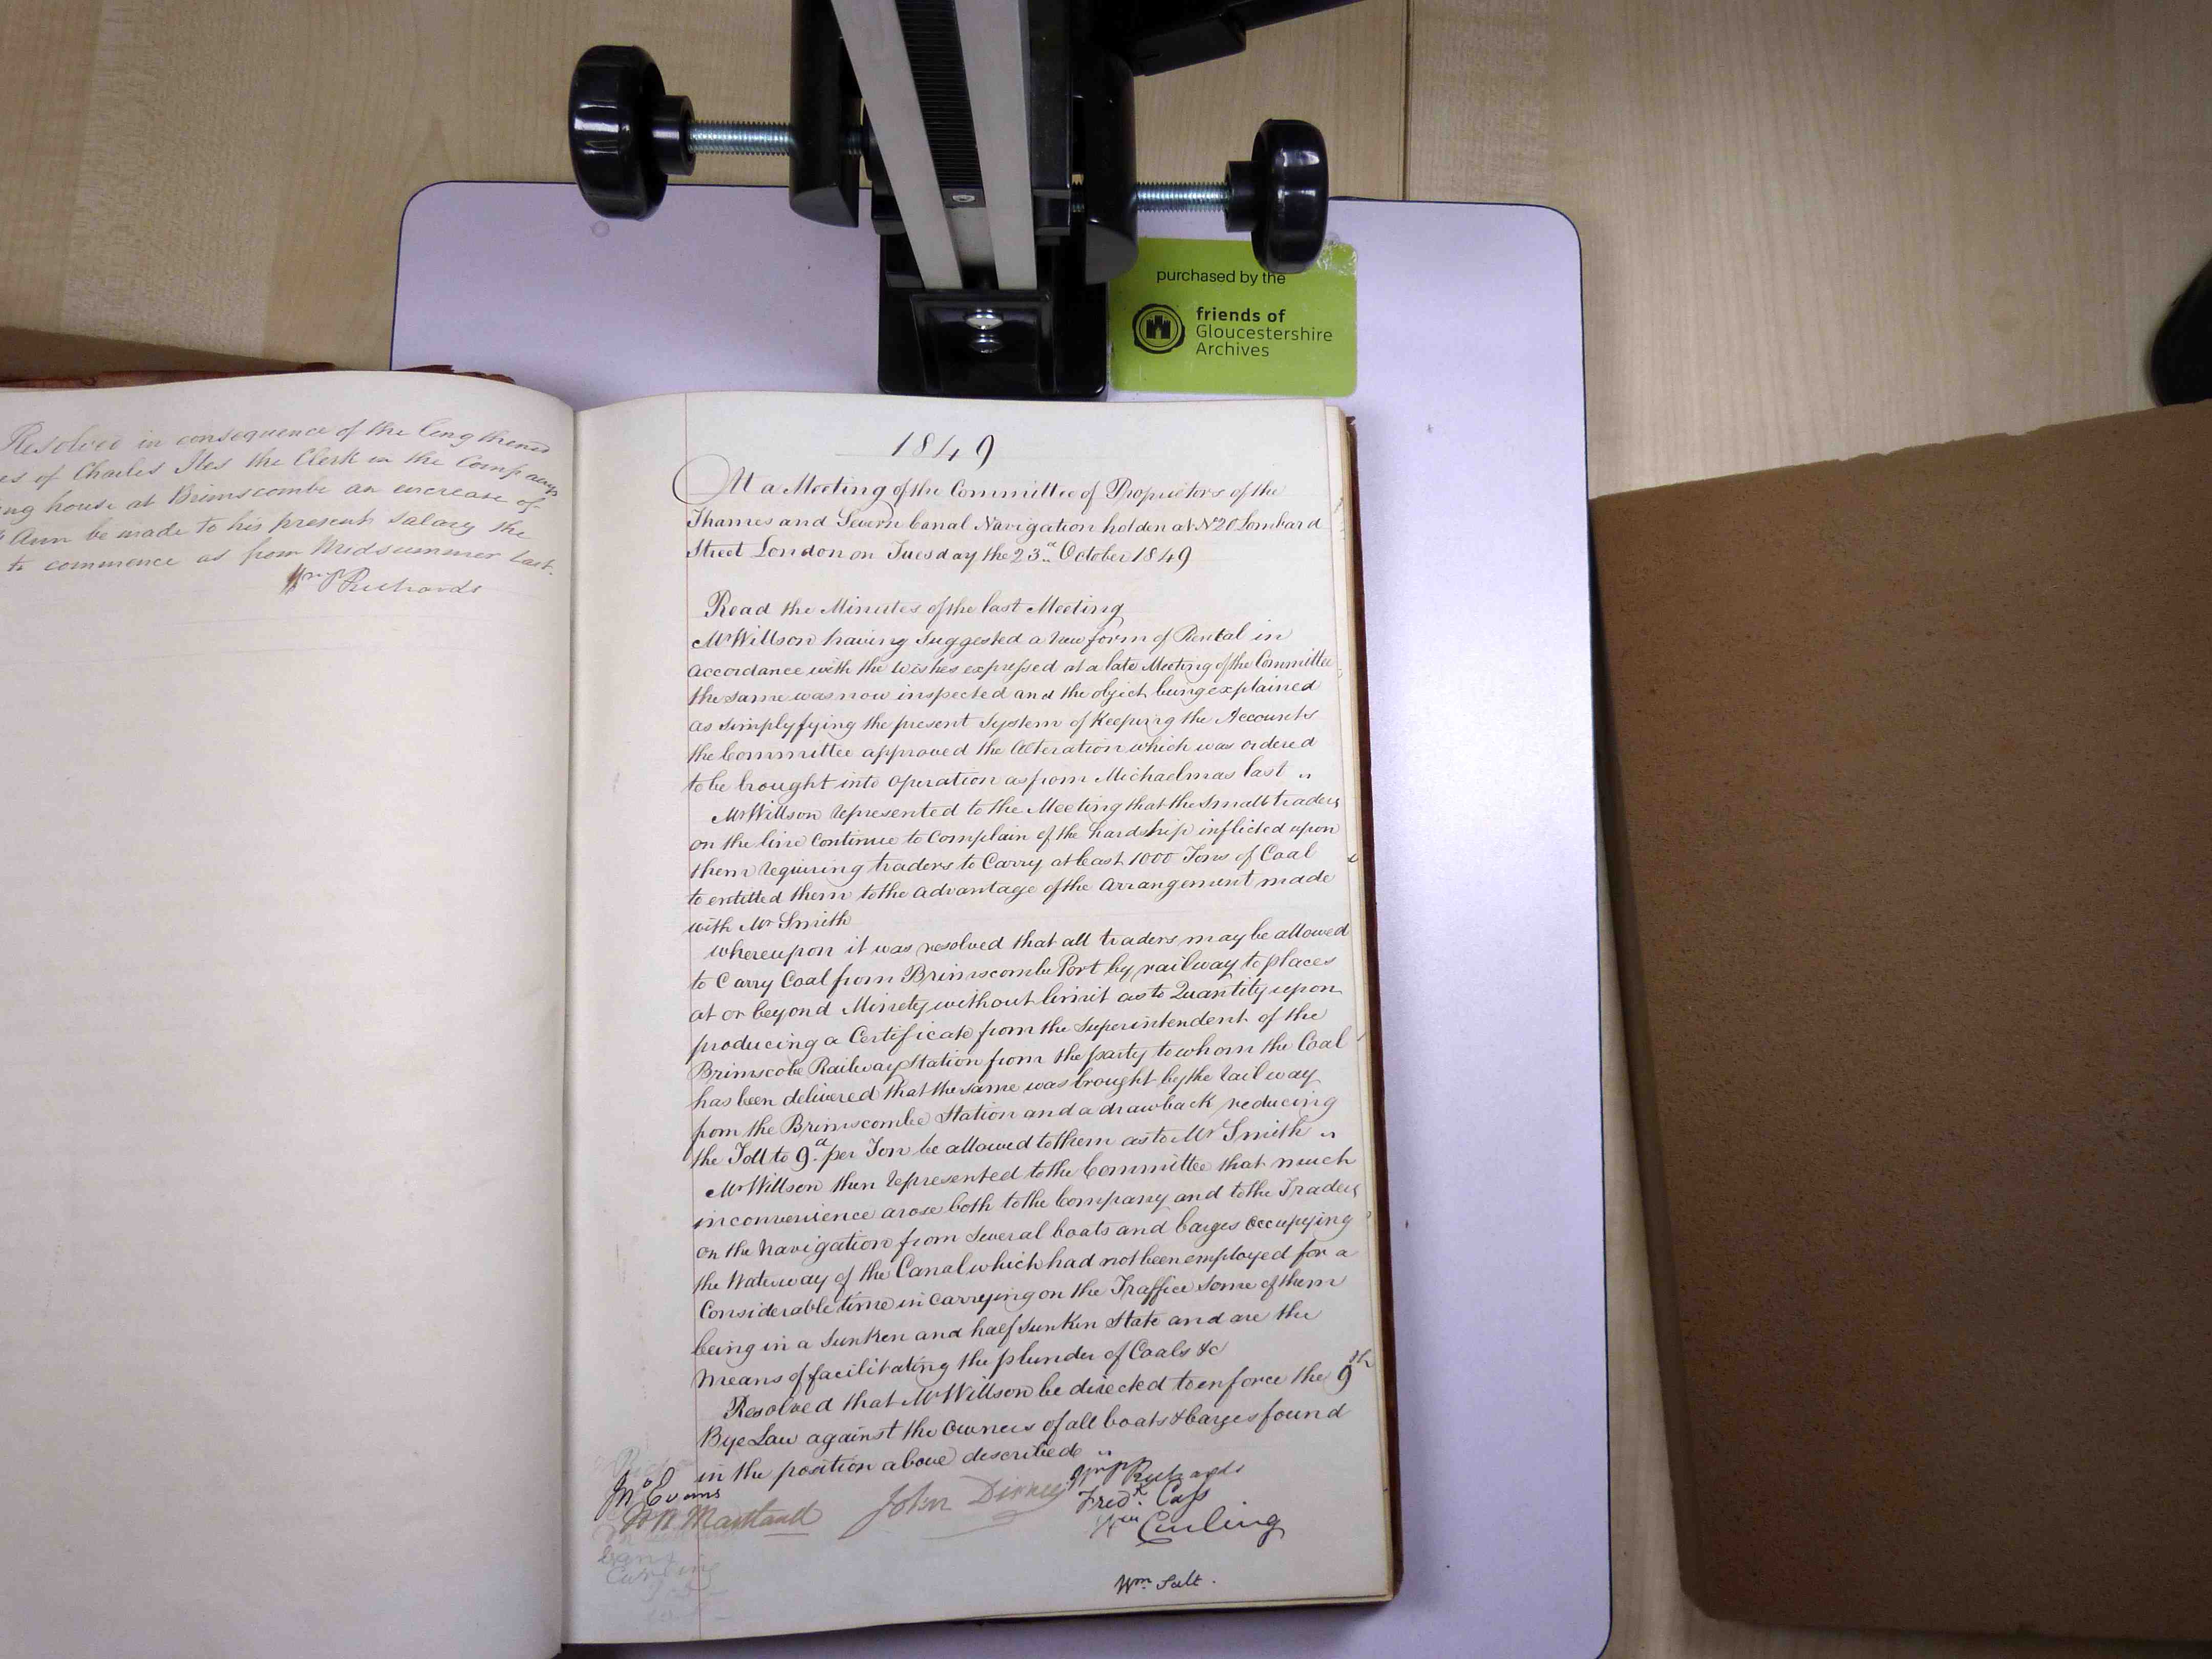 purchased by the
friends of
Gloucestershire
Archives
Resolved in consequence of the lengthened
es of Charles Iles the Clerk in the Companys
ng house at Brimscombe an increase of
Ann be made to his present salary the
to commence as from Midsummer last.
Wm P Richards
1849
At a Meeting of the Committee of Proprietors of the
Thames and Severn Canal Navigation holden at No 20 Lombard
Street London on Tuesday the 23d October 1849
Read the Minutes of the last Meeting
Mr Willson having suggested a new form of Rental in
accordance with the wishes expressed at a late Meeting of the Committee
the same was now inspected and the object being explained
as simplyfying the present System of Keeping the Accounts
the Committee approved the Alteration which was ordered
to be brought into Operation as from Michaelmas last "
Mr Willson represented to the Meeting that the small traders
on the line Continue to Complain of the hardship inflicted upon
them requiring traders to Carry at least 1000 Tons of Coal
to entitled them to the advantage of the arrangement made
with Mr Smith
whereupon it was resolved that all traders may be allowed
to Carry Coal from Brimscombe Port by railway to places
at or beyond Minety without limit as to Quantity upon
producing a Certificate from the Superintendent of the
Brimscobe Railway Station from the party to whom the Coal
has been delivered that the same was brought by the railway
from the Brimscombe Station and a drawback reducing
the Toll to 9d per Ton be allowed to them as to Mr Smith "
Mr Willson then represented to the Committee that much
inconvenience arose both to the Company and to the Traders
on the Navigation from several boats and barges occupying
the Waterway of the Canal which had not been employed for a
Considerable time in Carrying on the Traffice some of them
being in a sunken and half sunken State and are the
means of facilitating the plunder of Coals &c
Resolved that Mr Willson be directed to enforce the 9th
Bye Law against the Owners of all boats & barges found
in the position above described "
Jno Evans
Maitland
John Dirney
Wm P Richards
Fredk. Cass
Wm Curling
Wm. Salt.